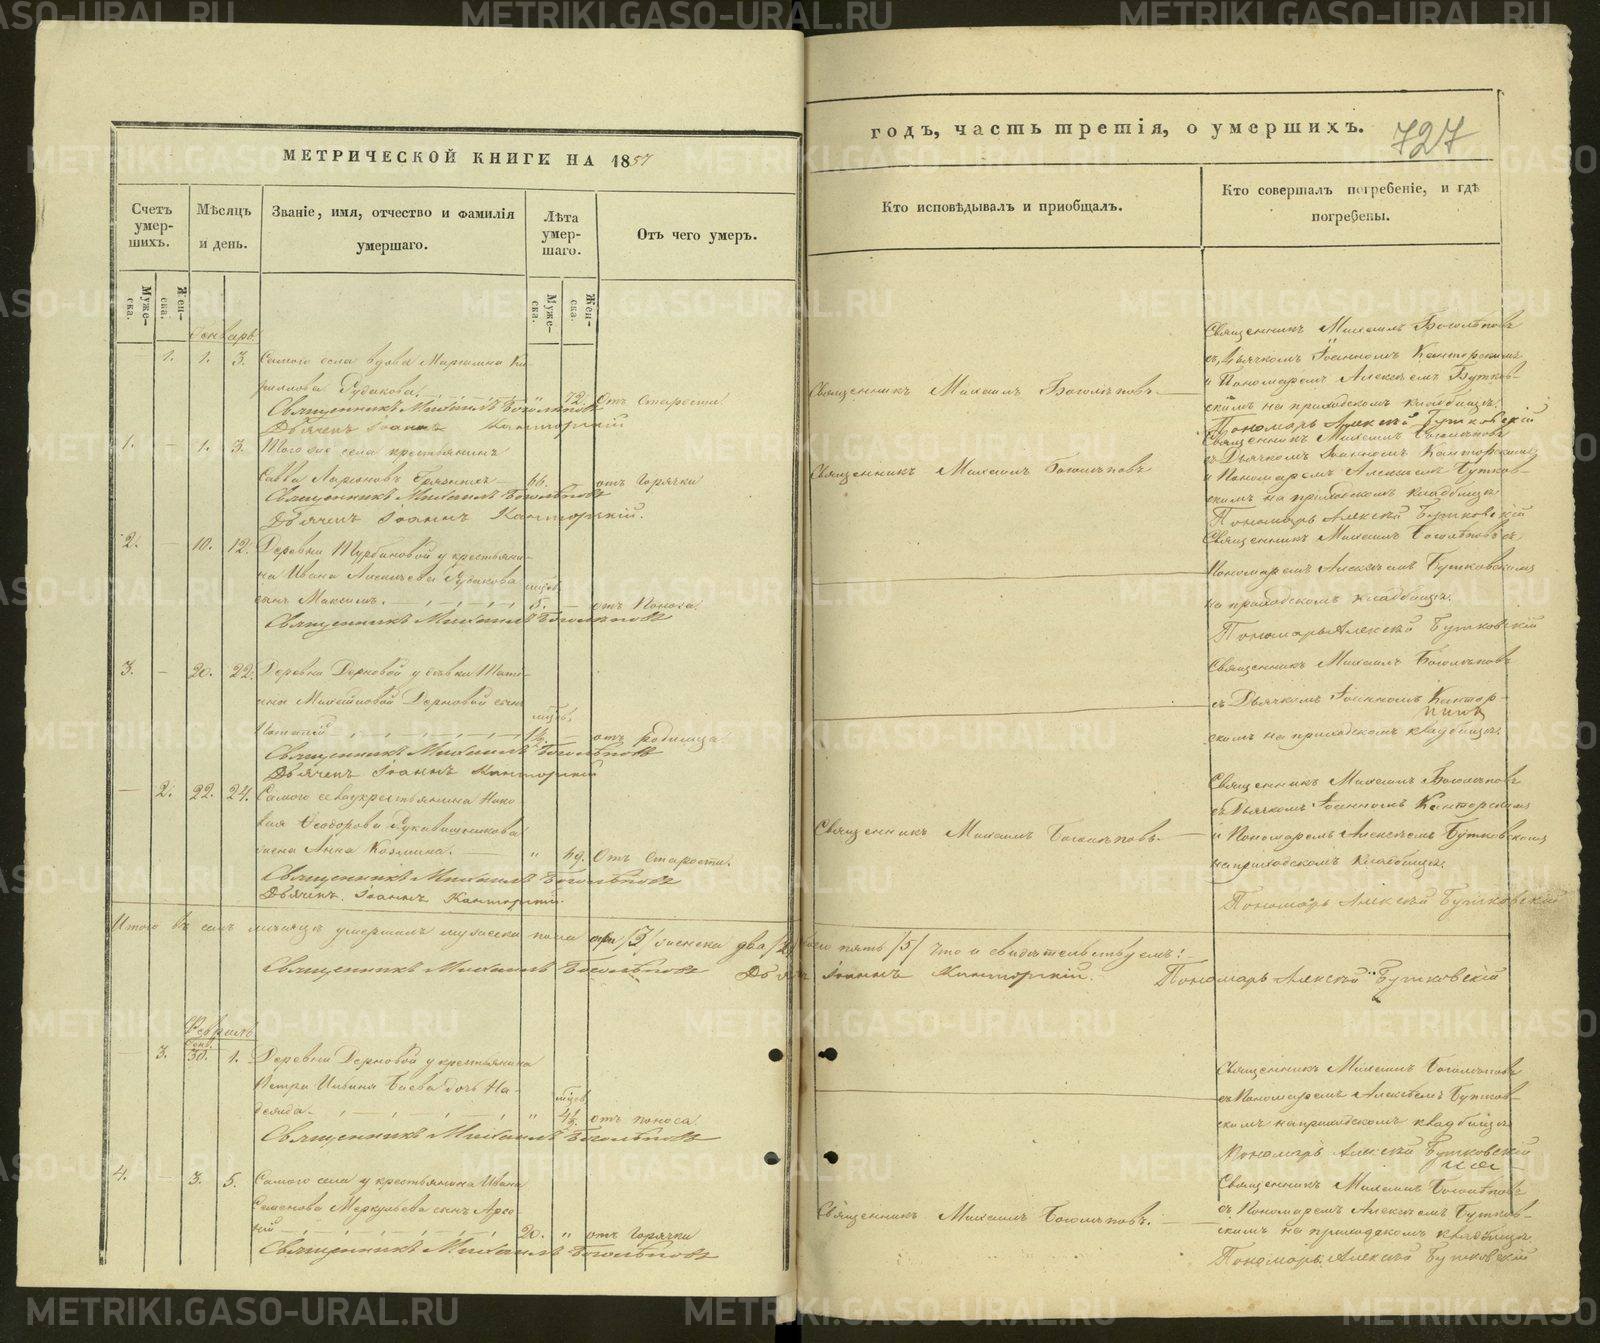 МЕТРИЧЕСКОЙ КНИГЕ НА 1857
годъ, часть третія, о умершихъ.
727
Счетъ умер-шихъ.
Мѣсяцъ и день.
Званіе, имя, отчество и фамилія умершаго.
Лѣта умер-шаго.
Отъ чего умеръ.
Кто исповѣдывалъ и пріобщалъ.
Кто совершалъ погребеніе, и гдѣ погребены.
Муже-ска.
Жен-ска.
Муже-ска.
Жен-ска.
Январь
1. 1. 3. Самого села вдова Марiамна Ки-
риллова Рудакова. 72. Отъ Старости.
Священникъ Михаилъ Боголѣповъ
Дьячекъ Іоаннъ Канторскій
Священникъ Михаилъ Боголѣповъ
Священникъ Михаилъ Боголѣповъ
съ Дьячкомъ Іоанномъ Канторскимъ
и Пономаремъ Алексѣемъ Бутков-
скимъ на приходскомъ кладбищѣ.
Пономарь Алексѣй Бутковскій
1. – 1. 3. Того же села крестьянинъ
Савва Ларіоновъ 66. – отъ Горячки
Священникъ Михаилъ Боголѣповъ
Дьячекъ Іоаннъ Канторскій.
Священникъ Михаилъ Боголѣповъ
Священникъ Михаилъ Боголѣповъ
съ Дьячкомъ Іоанномъ Канторскимъ
и Пономаремъ Алексѣемъ Бутков-
скимъ на приходскомъ кладбищѣ
Пономарь Алексѣй Бутковскій
2. – 10. 12. Деревни Турбановой у крестьяни-
на Ивана Алексѣева Рудакова
сынъ Максимъ. 5. – отъ Поноса.
Священникъ Михаилъ Боголѣповъ
Священникъ Михаилъ Боголѣповъ съ
Пономаремъ Алексѣемъ Бутковскимъ
на приходскомъ кладбищѣ.
Пономарь Алексѣй Бутковскій
3. – 20. 22. Деревни Дерновой у дѣвки Тать-
яны Дерновой сынъ
Потапій отъ родимца.
Священникъ Михаилъ Боголѣповъ
Дьячекъ Іоаннъ Канторскій
Священникъ Михаилъ Боголѣповъ
съ Дьячкомъ Іоанномъ Кантор-
скимъ на приходскомъ кладбищѣ.
– 2. 22. 24. Самого села у крестьянина Нико-
лая Ѳеодорова Рукавишникова
жена Анна Козмина. – „ 69. Отъ Старости.
Священникъ Михаилъ Боголѣповъ
Дьячекъ Іоаннъ Канторскій.
Священникъ Михаилъ Боголѣповъ.
Священникъ Михаилъ Боголѣповъ
съ Дьячкомъ Іоанномъ Канторскимъ
и Пономаремъ Алексѣемъ Бутковскимъ
на приходскомъ кладбищѣ.
Пономарь Алексѣй Бутковскій
Итого въ семъ мѣсяцѣ умершихъ мужеска пола три /3/ женска два /2/ всего пять /5/ что и свидѣтельствуемъ:
Священникъ Михаилъ Боголѣповъ Дьячекъ Іоаннъ Канторскій. Пономарь Алексѣй Бутковскій
Февраль
Генв.
– 3. 30. 1. Деревни Дерновой у крестьянина
Петра Ильина Баева дочь На-
дежда. „ 4½ отъ поноса.
Священникъ Михаилъ Боголѣповъ
Священникъ Михаилъ Боголѣповъ
съ Пономаремъ Алексѣемъ Бутков-
скимъ на приходскомъ кладбищѣ
Пономарь Алексѣй Бутковскій
4. – 3. 5. Самого села у крестьянина Ивана
Семенова Меркульева сынъ Арсе-
ній 20. „ отъ Горячки
Священникъ Михаилъ Боголѣповъ
Священникъ Михаилъ Боголѣповъ.
Священникъ Михаилъ Боголѣповъ
съ Пономаремъ Алексѣемъ Бутков-
скимъ на приходскомъ кладбищѣ
Пономарь Алексѣй Бутковскій
METRIKI.GASO-URAL.RU